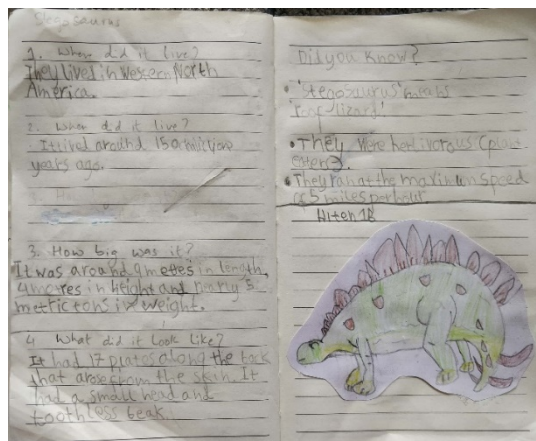 Stegosaurus
1. Where did it live?
They lived in Western North
America.
2. When did it live?
It lived around 150 million
years ago.
3. How big was it?
It was around 9 metres in length,
4 metres in height and nearly 3
metric tons in weight.
4 What did it look like?
It had 17 plates along the back
that arose from the skin. It
had a small head and
toothless beak.
Did you know?
• 'Stegosaurus' means
'roof-lizard'.
• They were herbivorous (plant
eaters).
• They ran at the maximum speed
of 5 miles per hour